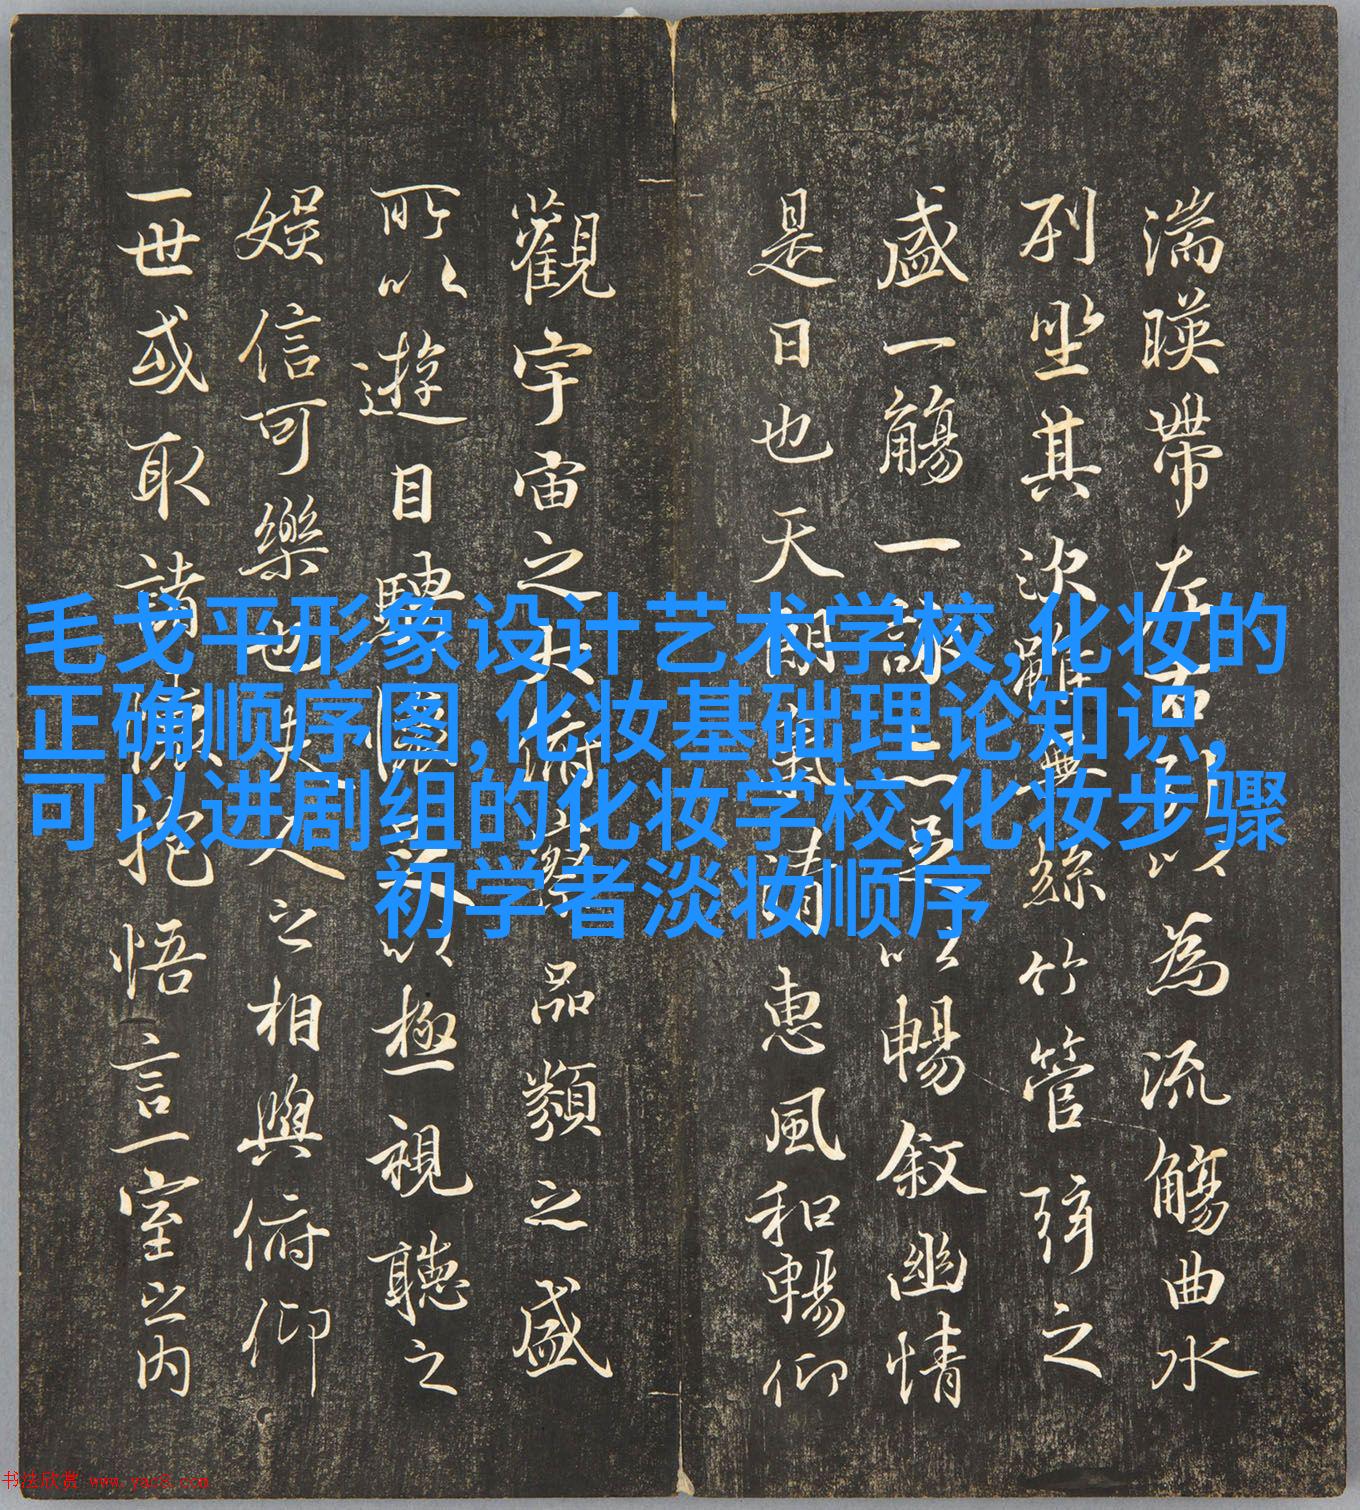 湍暎帶左右引以為流觴曲水
列坐其次雖無絲竹管弦之
盛一觴一詠亦足以暢敘幽情
是日也天朗氣清惠風和暢仰
觀宇宙之大俯察品類之盛
所以遊目騁懷足以極視聽之
娛信可樂也夫人之相與俯仰
一世或取諸懷抱悟言一室之內
毛戈平形象设计艺术学校,化妆的
正确顺序图,化妆基础理论知识,
可以进剧组的化妆学校,化妆步骤
初学者淡妆顺序
书法欣赏 www.yac8.com